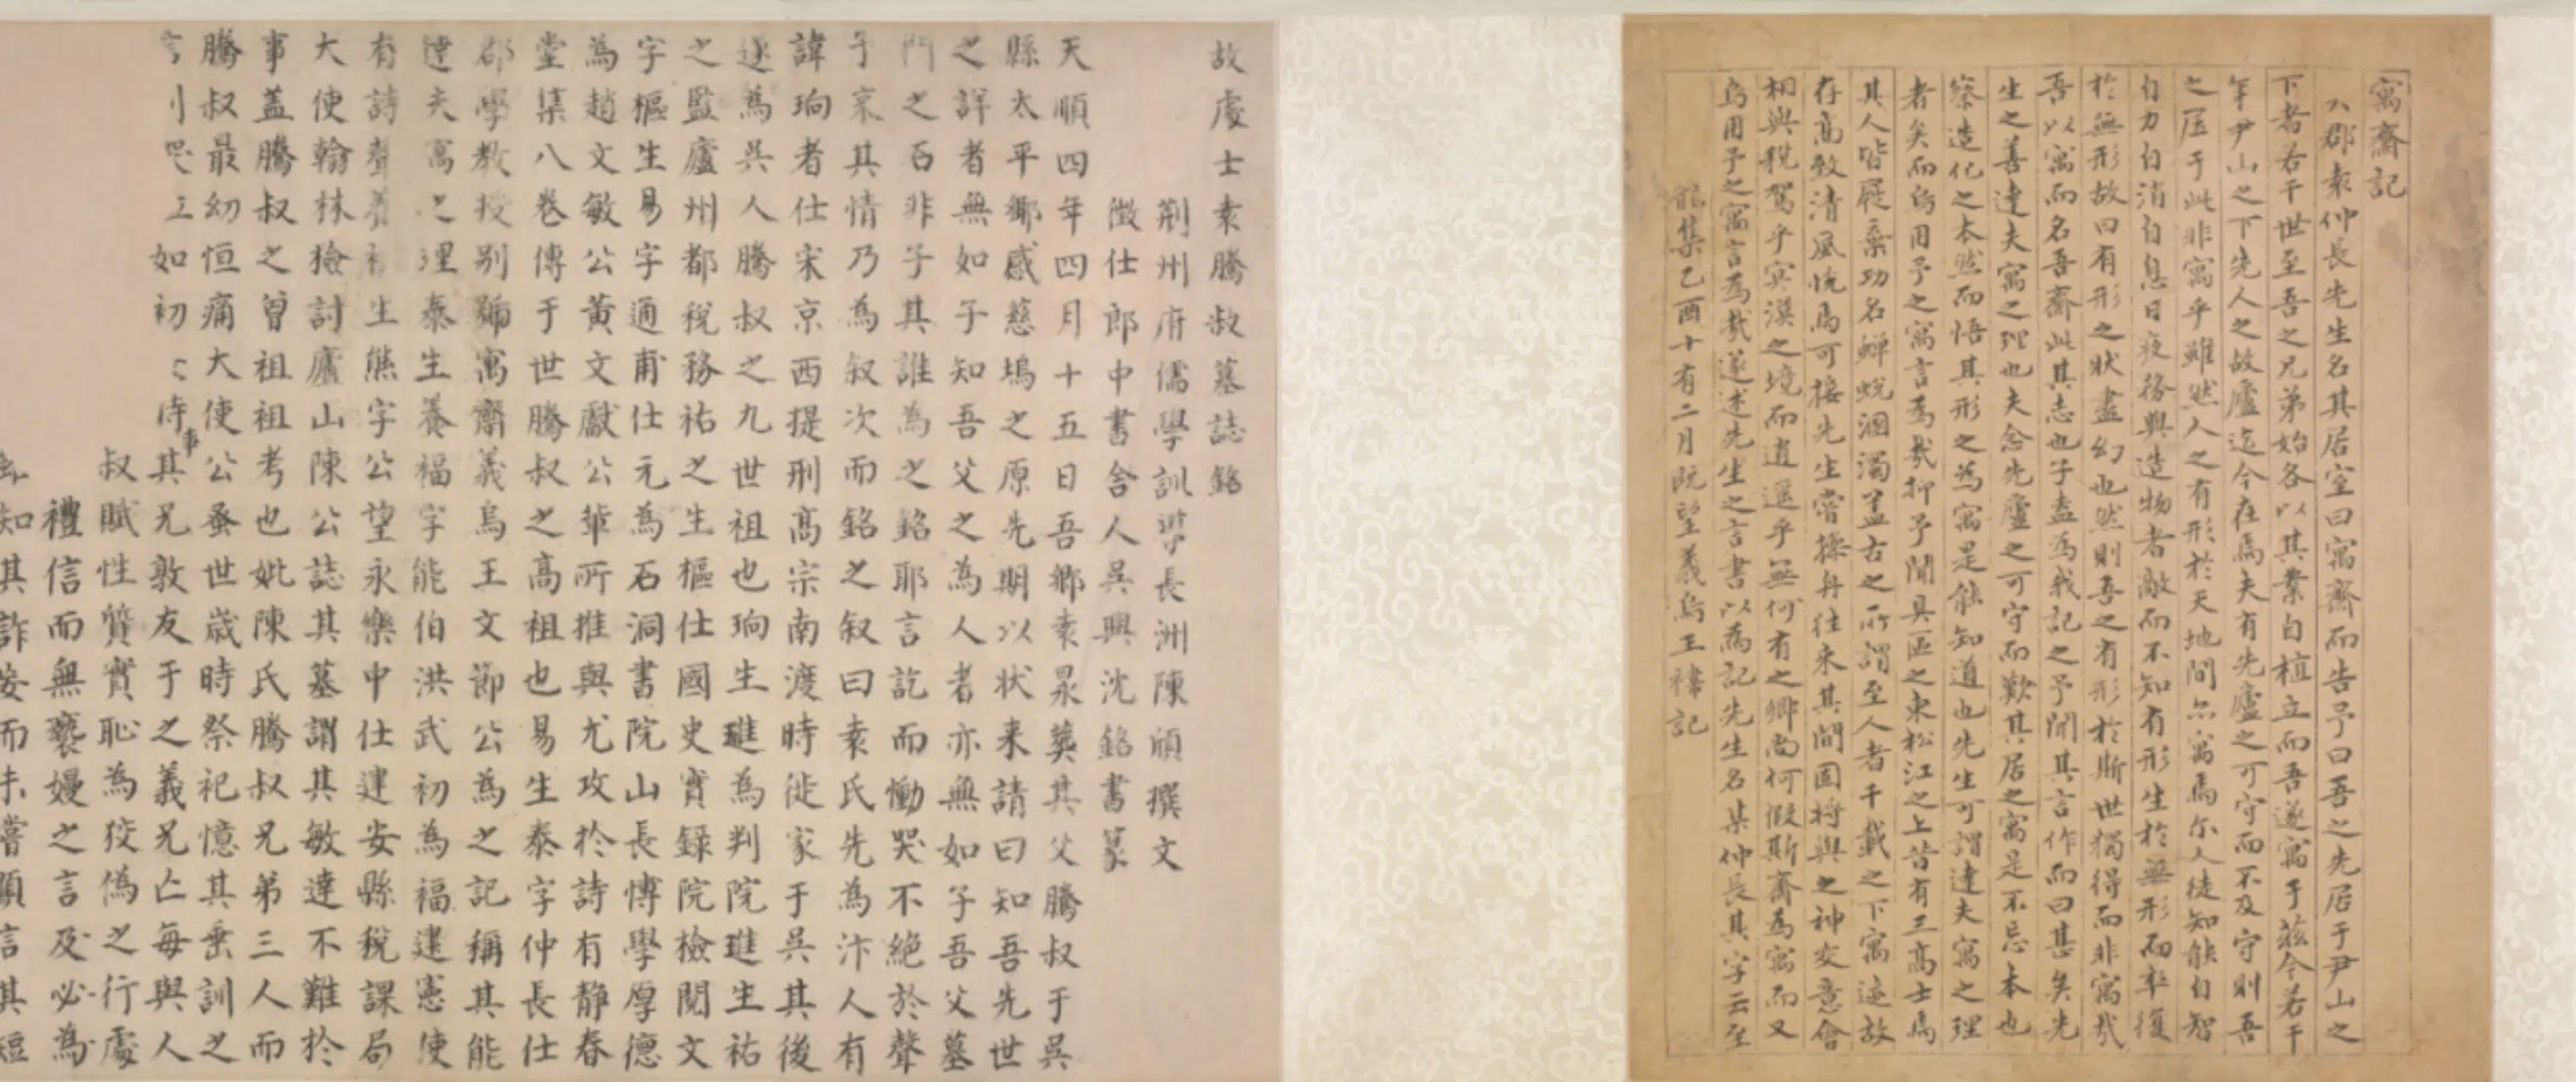 寓齋記
郡袁仲長先生名其居室曰寓齋而告予曰吾之先居于尹山之
下者若干世至吾之兄弟始各以其業自植立而吾遂寓于茲今若干
年尹山之下先人之故廬迄今在焉夫有先廬之可守而不及守則吾
之居于此非寓乎雖然人之有形於天地間亦寓焉尔人徒知能自智
自力自消自息日夜務與造物者敵而不知有形生於無形而卒復
於無形故曰有形之狀盡幻也然則吾之有形於斯世獨得而非寓哉
吾以寓而名吾齋此其志也子盍為我記之予聞其言作而曰甚矣先
生之善達夫寓之理也夫念先廬之可守而歎其居之寓是不忘本也
察造化之本然而悟其形之為寓是能知道也先生可謂達夫寓之理
者矣而烏用予之寓言為哉抑予聞具區之東松江之上昔有三高士焉
其人皆屣棄功名蟬蛻溷濁盖古之所謂至人者千載之下寓迹故
存高致清風恍焉可接先生嘗操舟往来其間固將與之神交意會
相與稅駕乎㝠漠之境而逍遥乎無何有之鄉尚何假斯齋為寓而又
烏用予之寓言為哉遂述先生之言書以為記先生名某仲長其字云至
集乙酉十有二月既望義烏王褘記
故處士袁騰叔墓誌銘
荆州府儒學訓導長洲陳頎撰文
徵仕郎中書舍人吳興沈銘書篆
天順四年四月十五日吾鄉袁㫤塟其父騰叔于吳
縣太平鄉感慈塢之原先期以状来請曰知吾先世
之詳者無如子知吾父之為人者亦無如子吾父墓
門之石非子其誰為之銘耶言訖而慟哭不絶於聲
予哀其情乃為叙次而銘之叙曰袁氏先為汴人有
諱珦者仕宋京西提刑髙宗南渡時徙家于吳其後
遂為吳人騰叔之九世祖也珦生璡為判院璡生祐
之監廬州都稅務祐之生樞仕國史實録院檢閲文
字樞生易字通甫仕元為石洞書院山長博學厚德
為趙文敏公黄文獻公軰所推與尤攻於詩有靜春
堂集八卷傳于世騰叔之髙祖也易生泰字仲長仕
郡學教授别號寓齋義烏王文節公為之記稱其能
達夫寓之理泰生養福字能伯洪武初為福建憲使
有詩聲養福生熊字公望永樂中仕建安縣稅課局
大使翰林檢討廬山陳公誌其墓謂其敏達不難於
事盖騰叔之曽祖祖考也妣陳氏騰叔兄弟三人而
騰叔最幼恒痛大使公蚤世歲時祭祀憶其垂訓之
如初時事其兄敦友于之義兄亡每與人
叔賦性質實恥為狡偽之行處
禮信而無䙝嫚之言及必為
知其詐妄而未嘗顯言其短